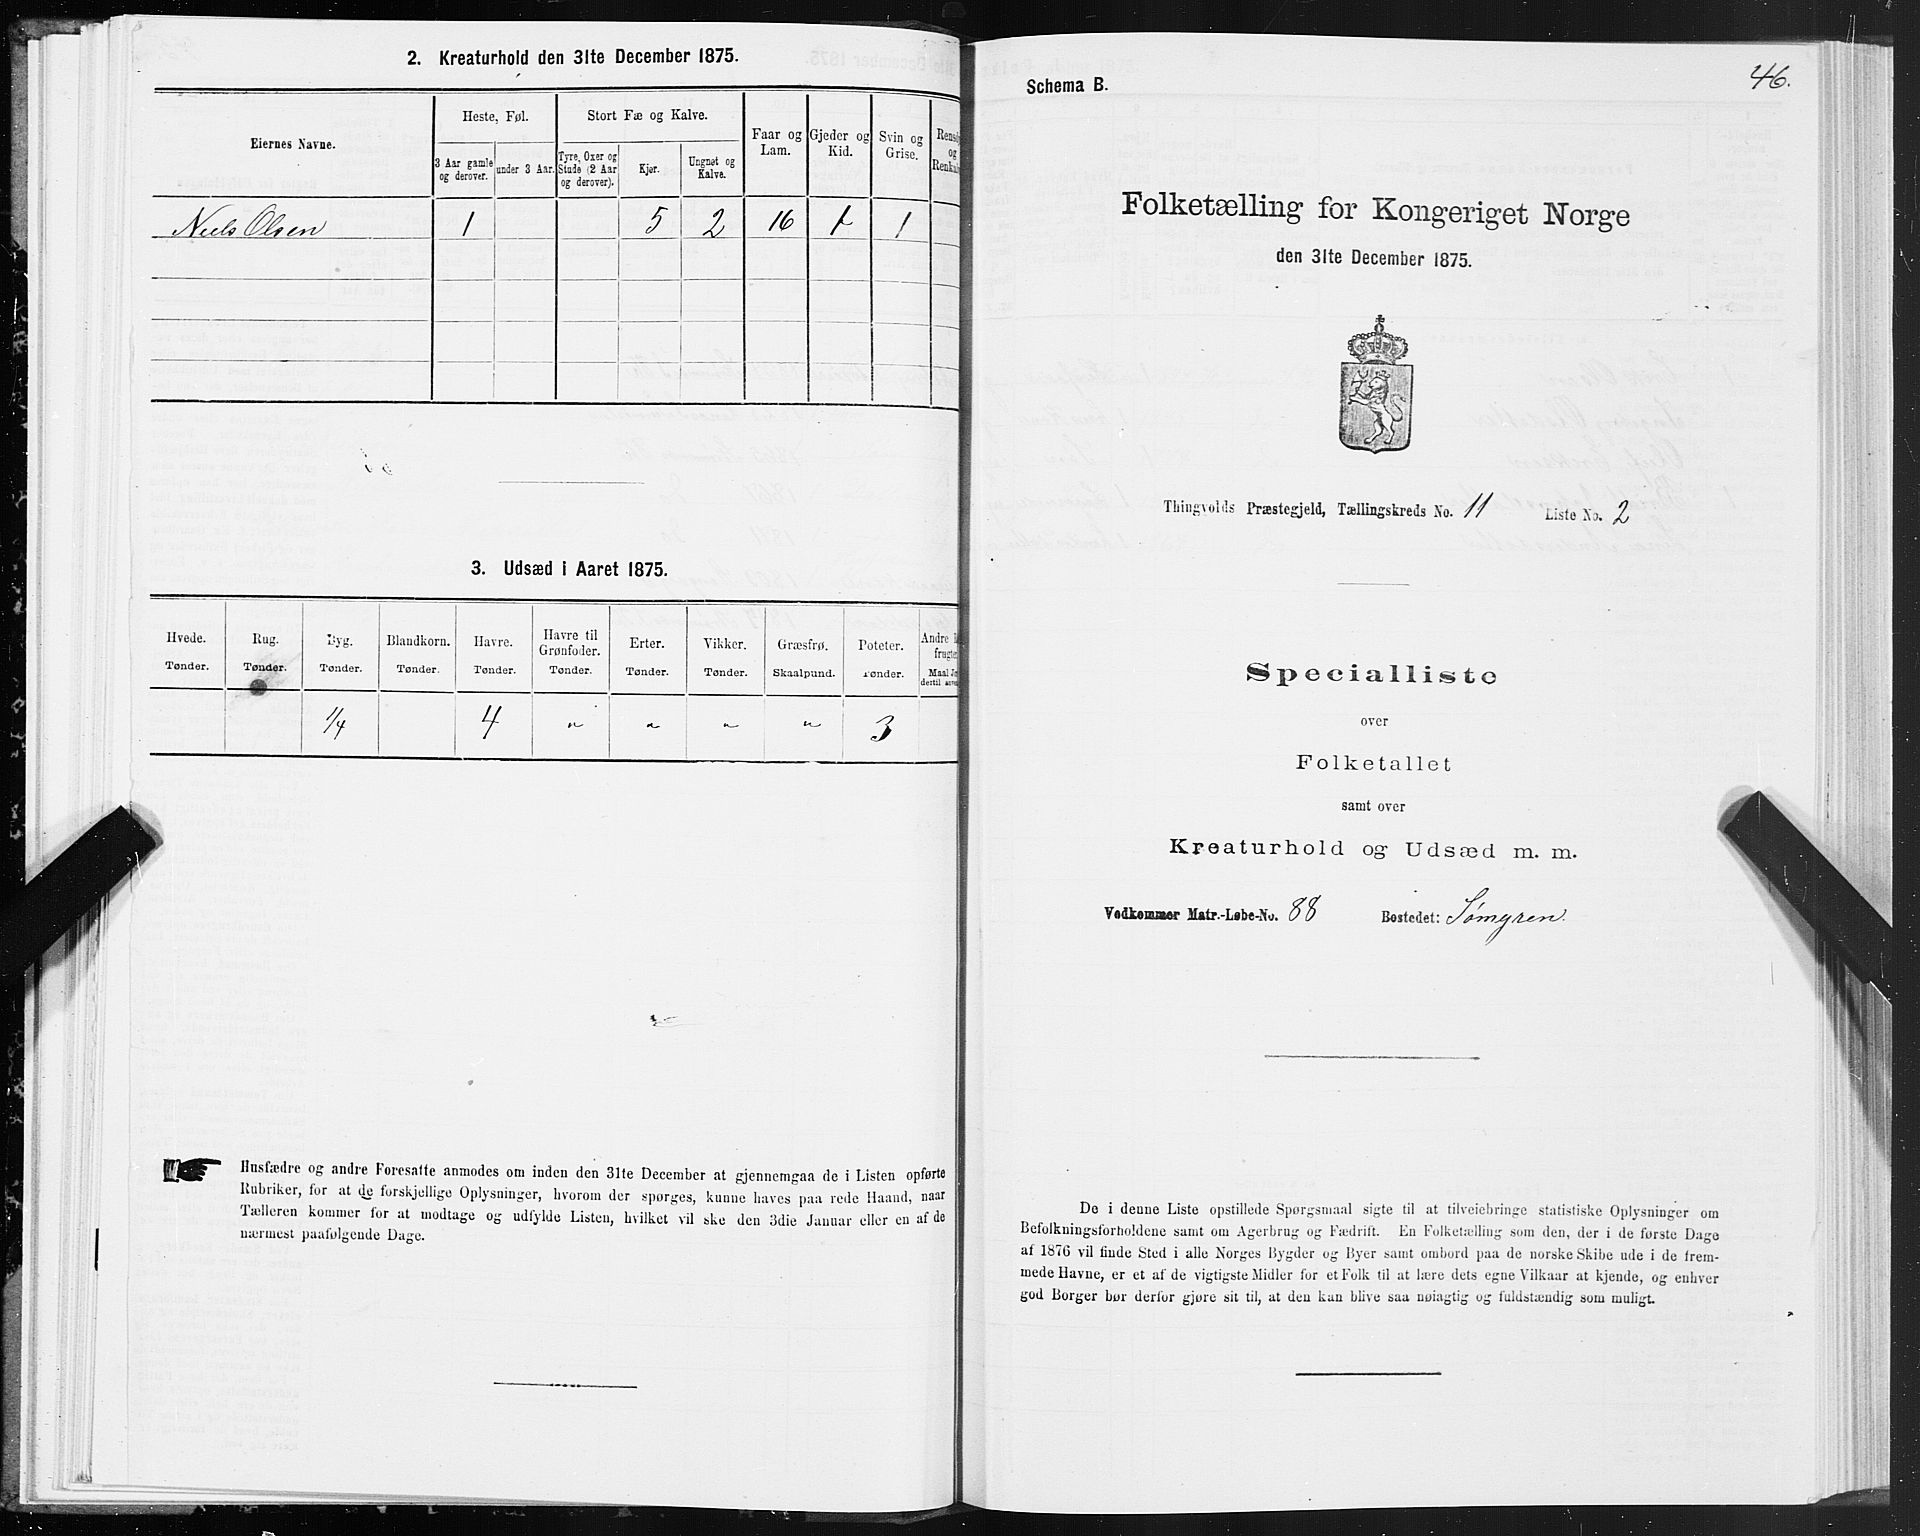 2. Kreaturhold den 31te December 1875.
Eiernes Navne.
Heste, Føl.
Stort Fæ og Kalve.
Faar og Lam.
Gjeder og Kid.
Svin og Grise.
og
3 Aar gamle og derover.
under 3 Aar.
Tyre, Oxer og Stude (2 Aar og derover).
Kjør.
Ungnøt og Kalve.
Niels Olsen 1 5 2 16 1 1
3. Udsæd i Aaret 1875.
Hvede. Rug. Byg. Blandkorn. Havre. Havre til Grønfoder. Erter. Vikker. Græsfrø. Poteter. Andre
Tønder. Tønder. Tønder. Tønder. Tønder. Tønder. Tønder. Tønder. Skaalpund. Tønder. Maal
1/4 4 " " " " 3
Husfædre og andre Foresatte anmodes om inden den 31te December at gjennemgaa de i Listen opførte
Rubriker, for at de forskjellige Oplysninger, hvorom der spørges, kunne haves paa rede Haand, naar
Tælleren kommer for at modtage og udfylde Listen, hvilket vil ske den 3die Januar eller en af de
nærmest paafølgende Dage.
46.
Schema B.
Folketælling for Kongeriget Norge
den 31te December 1875.
Thingvolds Præstegjeld, Tællingskreds No. 11 Liste No. 2
Specialliste
over
Folketallet
samt over
Kreaturhold og Udsæd m. m.
Vedkommer Matr.-Løbe-No. 88 Bostedet: Sømgren.
De i denne Liste opstillede Spørgsmaal sigte til at tilveiebringe statistiske Oplysninger om
Befolkningsforholdene samt om Agerbrug og Fædrift. En Folketælling som den, der i de første Dage
af 1876 vil finde Sted i alle Norges Bygder og Byer samt ombord paa de norske Skibe ude i de frem-
mede Havne, er et af de vigtigste Midler for et Folk til at lære dets egne Vilkaar at kjende, og enhver
god Borger bør derfor gjøre sit til, at den kan blive saa nøiagtig og fuldstændig som muligt.